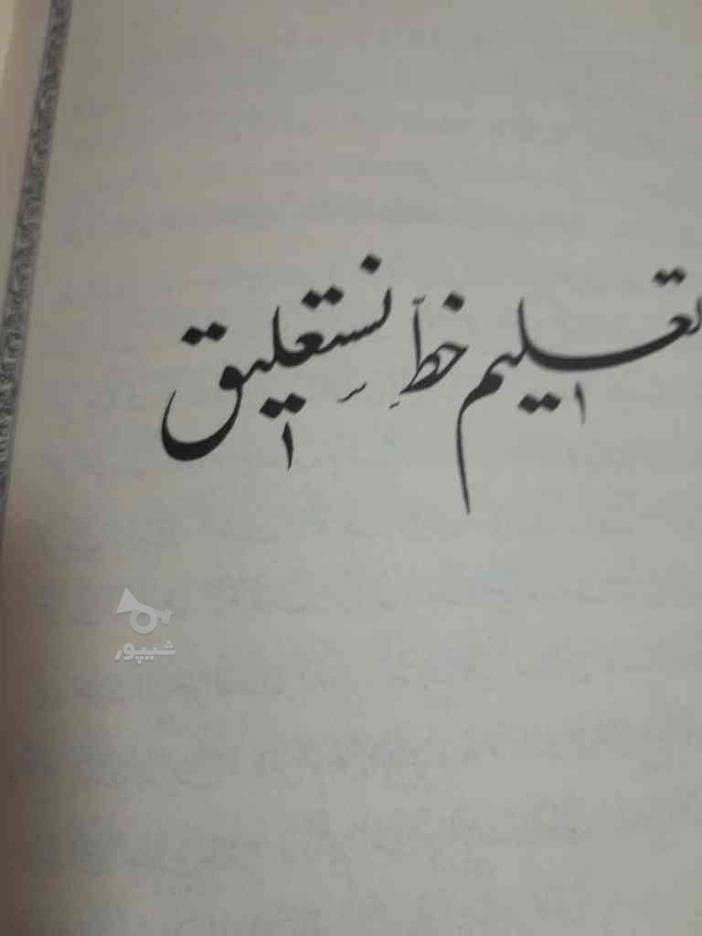 تعلیم خطِ نستعلیق
شیپور